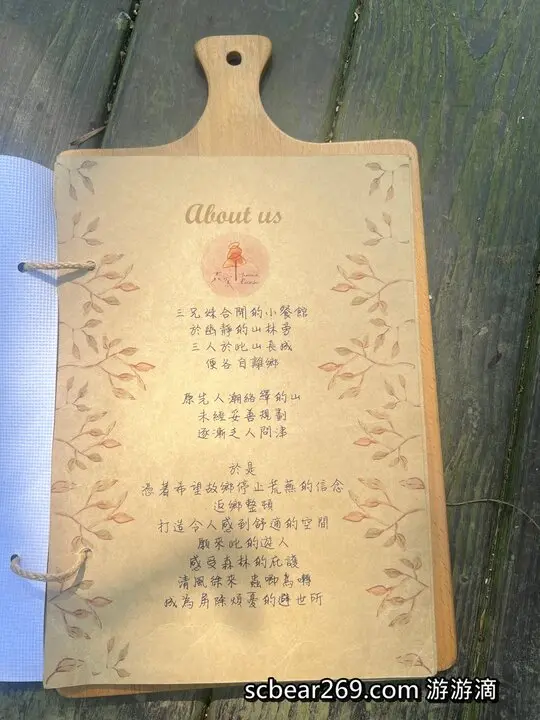 About us
三兄妹合開的小餐館
於幽靜的山林旁
三人於此山長成
便各自離鄉
原先人潮絡繹的山
未經妥善規劃
逐漸乏人問津
於是
憑著希望故鄉停止荒蕪的信念
返鄉整頓
打造令人感到舒適的空間
願來此的遊人
感受森林的庇護
清風徐來 蟲唧鳥囀
成為屏除煩憂的避世所
scbear269.com 游游滴